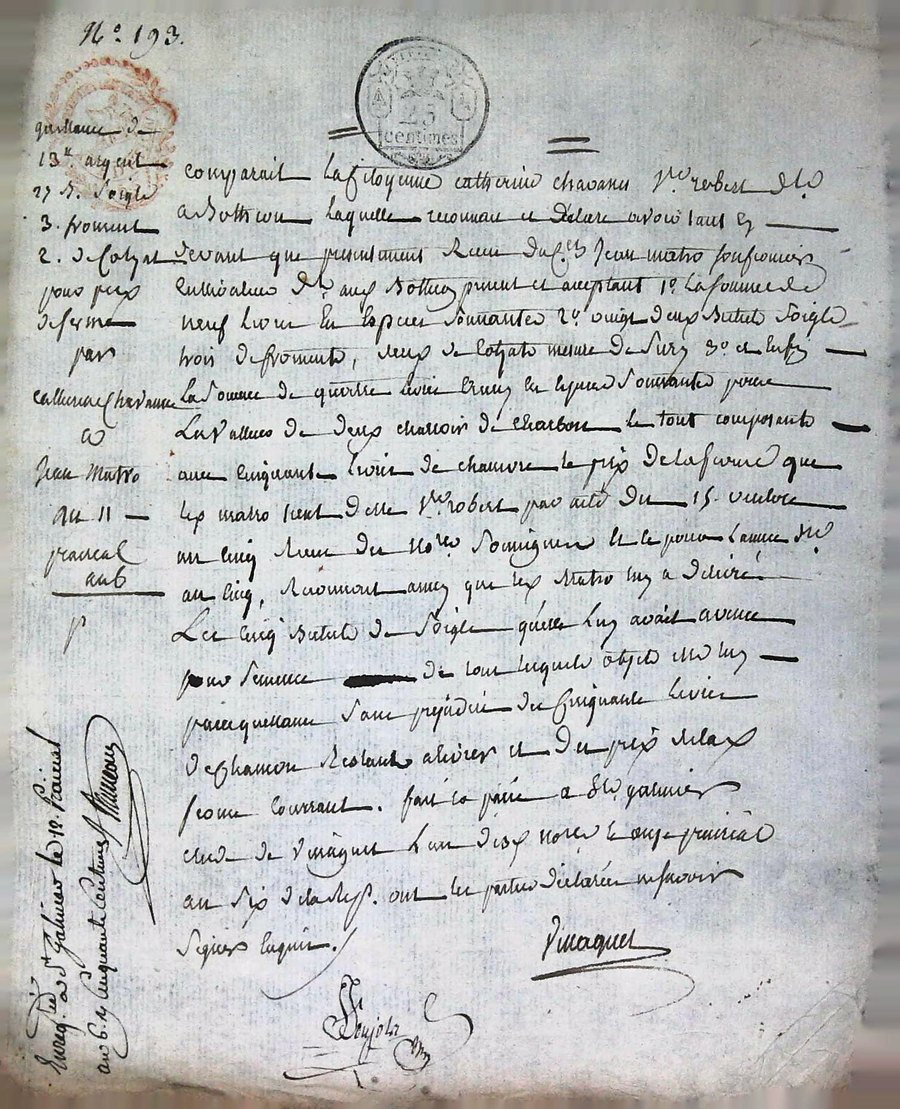 N.° 193.
25
centimes
quittance de
13# argent
27 B. Soigle
3. froment
2. de Colzat
pour prix
de ferme
par
Catherine Chavanne
a
Jean Matro
du 11
prairial
an 6
comparait La Citoyenne Catherine Chavanne V.ve robert
a Bothéon Laquelle reconnait et déclare avoir tant cy
devant que presentement Receu du C.en Jean matro
acceptant 1.° La somme de
neuf Livre En Espece Sonnante 2.° vingt deux Bichets Soigle
trois de froment, deux de Colzat mesure de Sury 3.° et Enfin
La Somme de quatre Livre En espece Sonnante pour
La Valleur de deux charrois de Charbon le tout composant
avec Cinquante Livre de chanvre le prix de la ferme que
Les matro tient de la V.ve robert par acte du 15. ventose
an Cinq Receu du No.re Soussigné Et ce pour L'année
an Cinq, Reconnait aussy que Les Matro luy a délivré
Les Cinq Bichets de Soigle qu'elle Luy avait avancé
pour Semence de tout lesquels objets elle luy
passe quittance Sans préjudice des Cinquante Livres
de Chanvre Restant a livrer et du prix de la
ferme Courrant. fait et passé a St. galmier
etude de Vinaquet L'un des No.re le onze prairial
an Six de la Rep. ont les parties déclarée ne Savoir
Signer Enquis./.
Vinaquet
Enreg.tré a St. Galmier le 12. Prairial
an 6. Cinquante Centimes